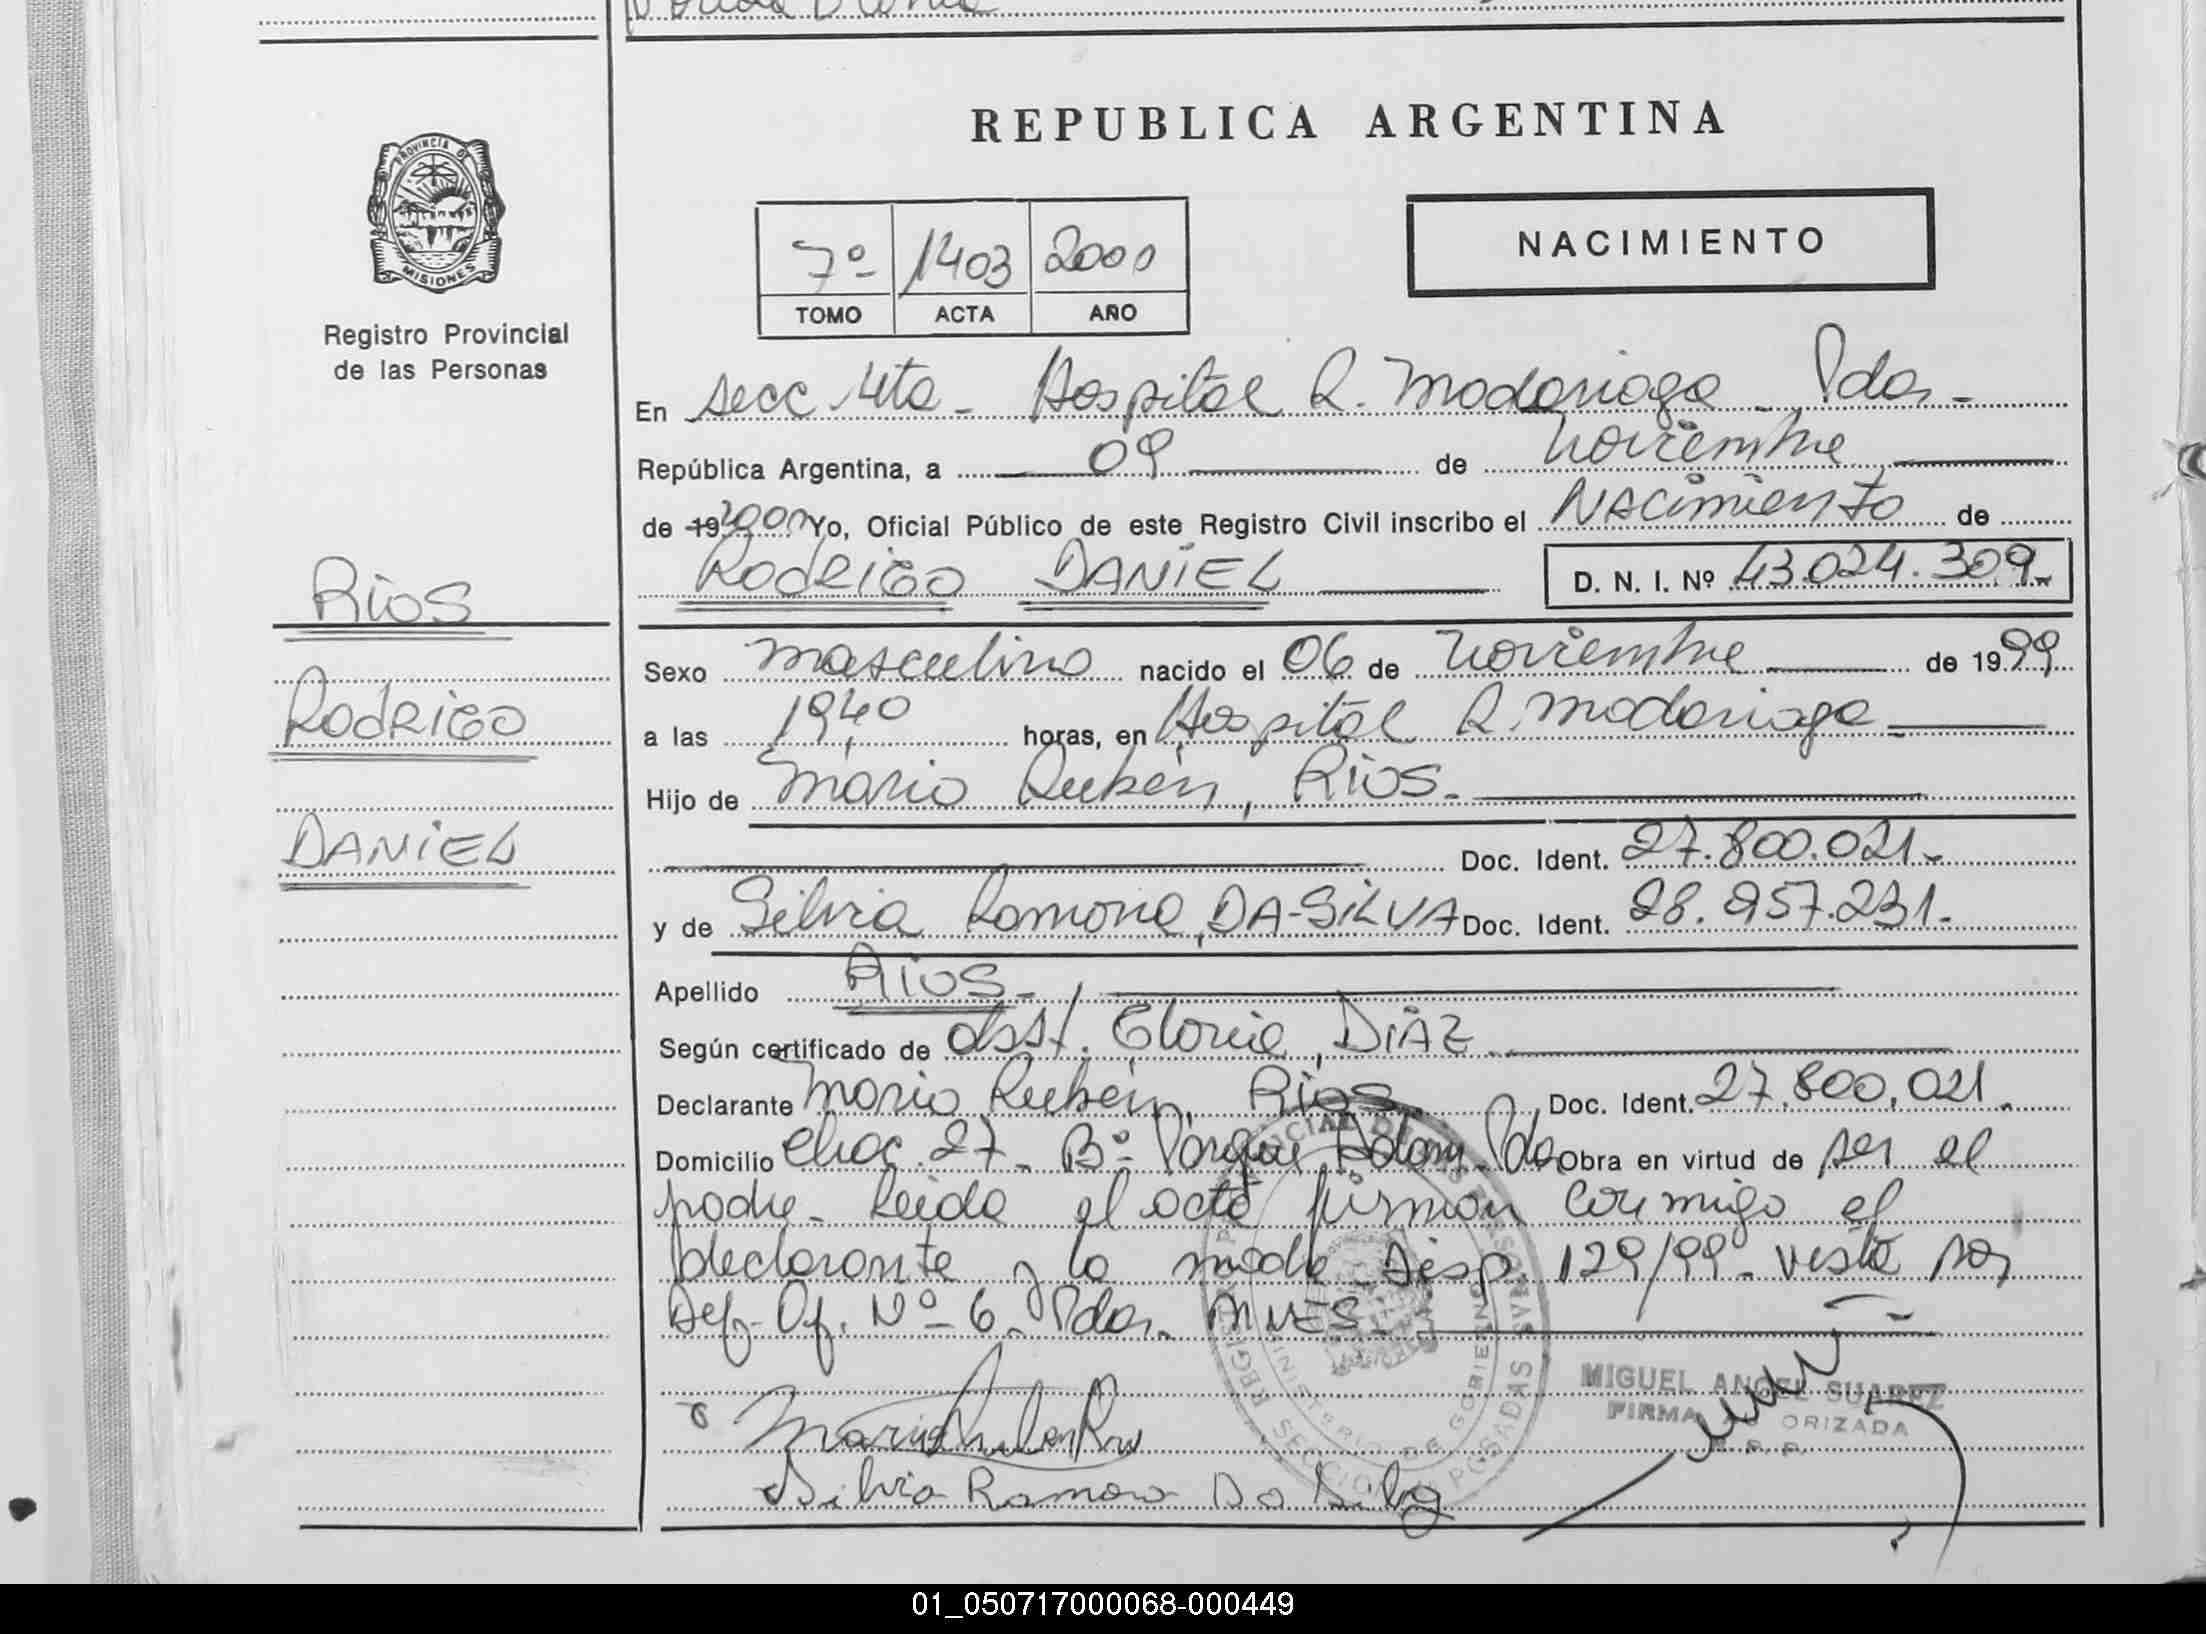 REPUBLICA ARGENTINA
PROVINCIA DE
MISIONES
Registro Provincial
de las Personas
7º 1403 2000
TOMO ACTA AÑO
NACIMIENTO
En secc 4ta - Hospital R. Madariaga - Pdas -
República Argentina, a 09 de noviembre
de 19 2000 Yo, Oficial Público de este Registro Civil inscribo el Nacimiento de
Rodrigo DANIEL D. N. I. Nº 43.024.309-
Rios
Rodrigo
DANIEL
Sexo masculino nacido el 06 de noviembre de 1999
a las 19,40 horas, en Hospital R. Madariaga
Hijo de Mario Rubén, Rios.
Doc. Ident. 27.800.021-
y de Silvia Ramona, DA-SILVA Doc. Ident. 28.957.231-
Apellido Rios-
Según certificado de obst. Gloria, DIAZ
Declarante Mario Rubén, Rios Doc. Ident. 27.800.021.
Domicilio chac. 27- Bº Parque Adam. Pdas Obra en virtud de ser el
padre- Leida el acta firman conmigo el
declarante y la madre Disp. 129/99- vista por
Def. Of. Nº 6- Pdas. MNES-
MIGUEL ANGEL SUAREZ
FIRMA AUTORIZADA
R. P. P.
Mario Ruben Rios
Silvia Ramona Da Silva
MINISTERIO DE GOBIERNO
SECCION POSADAS
01_050717000068-000449